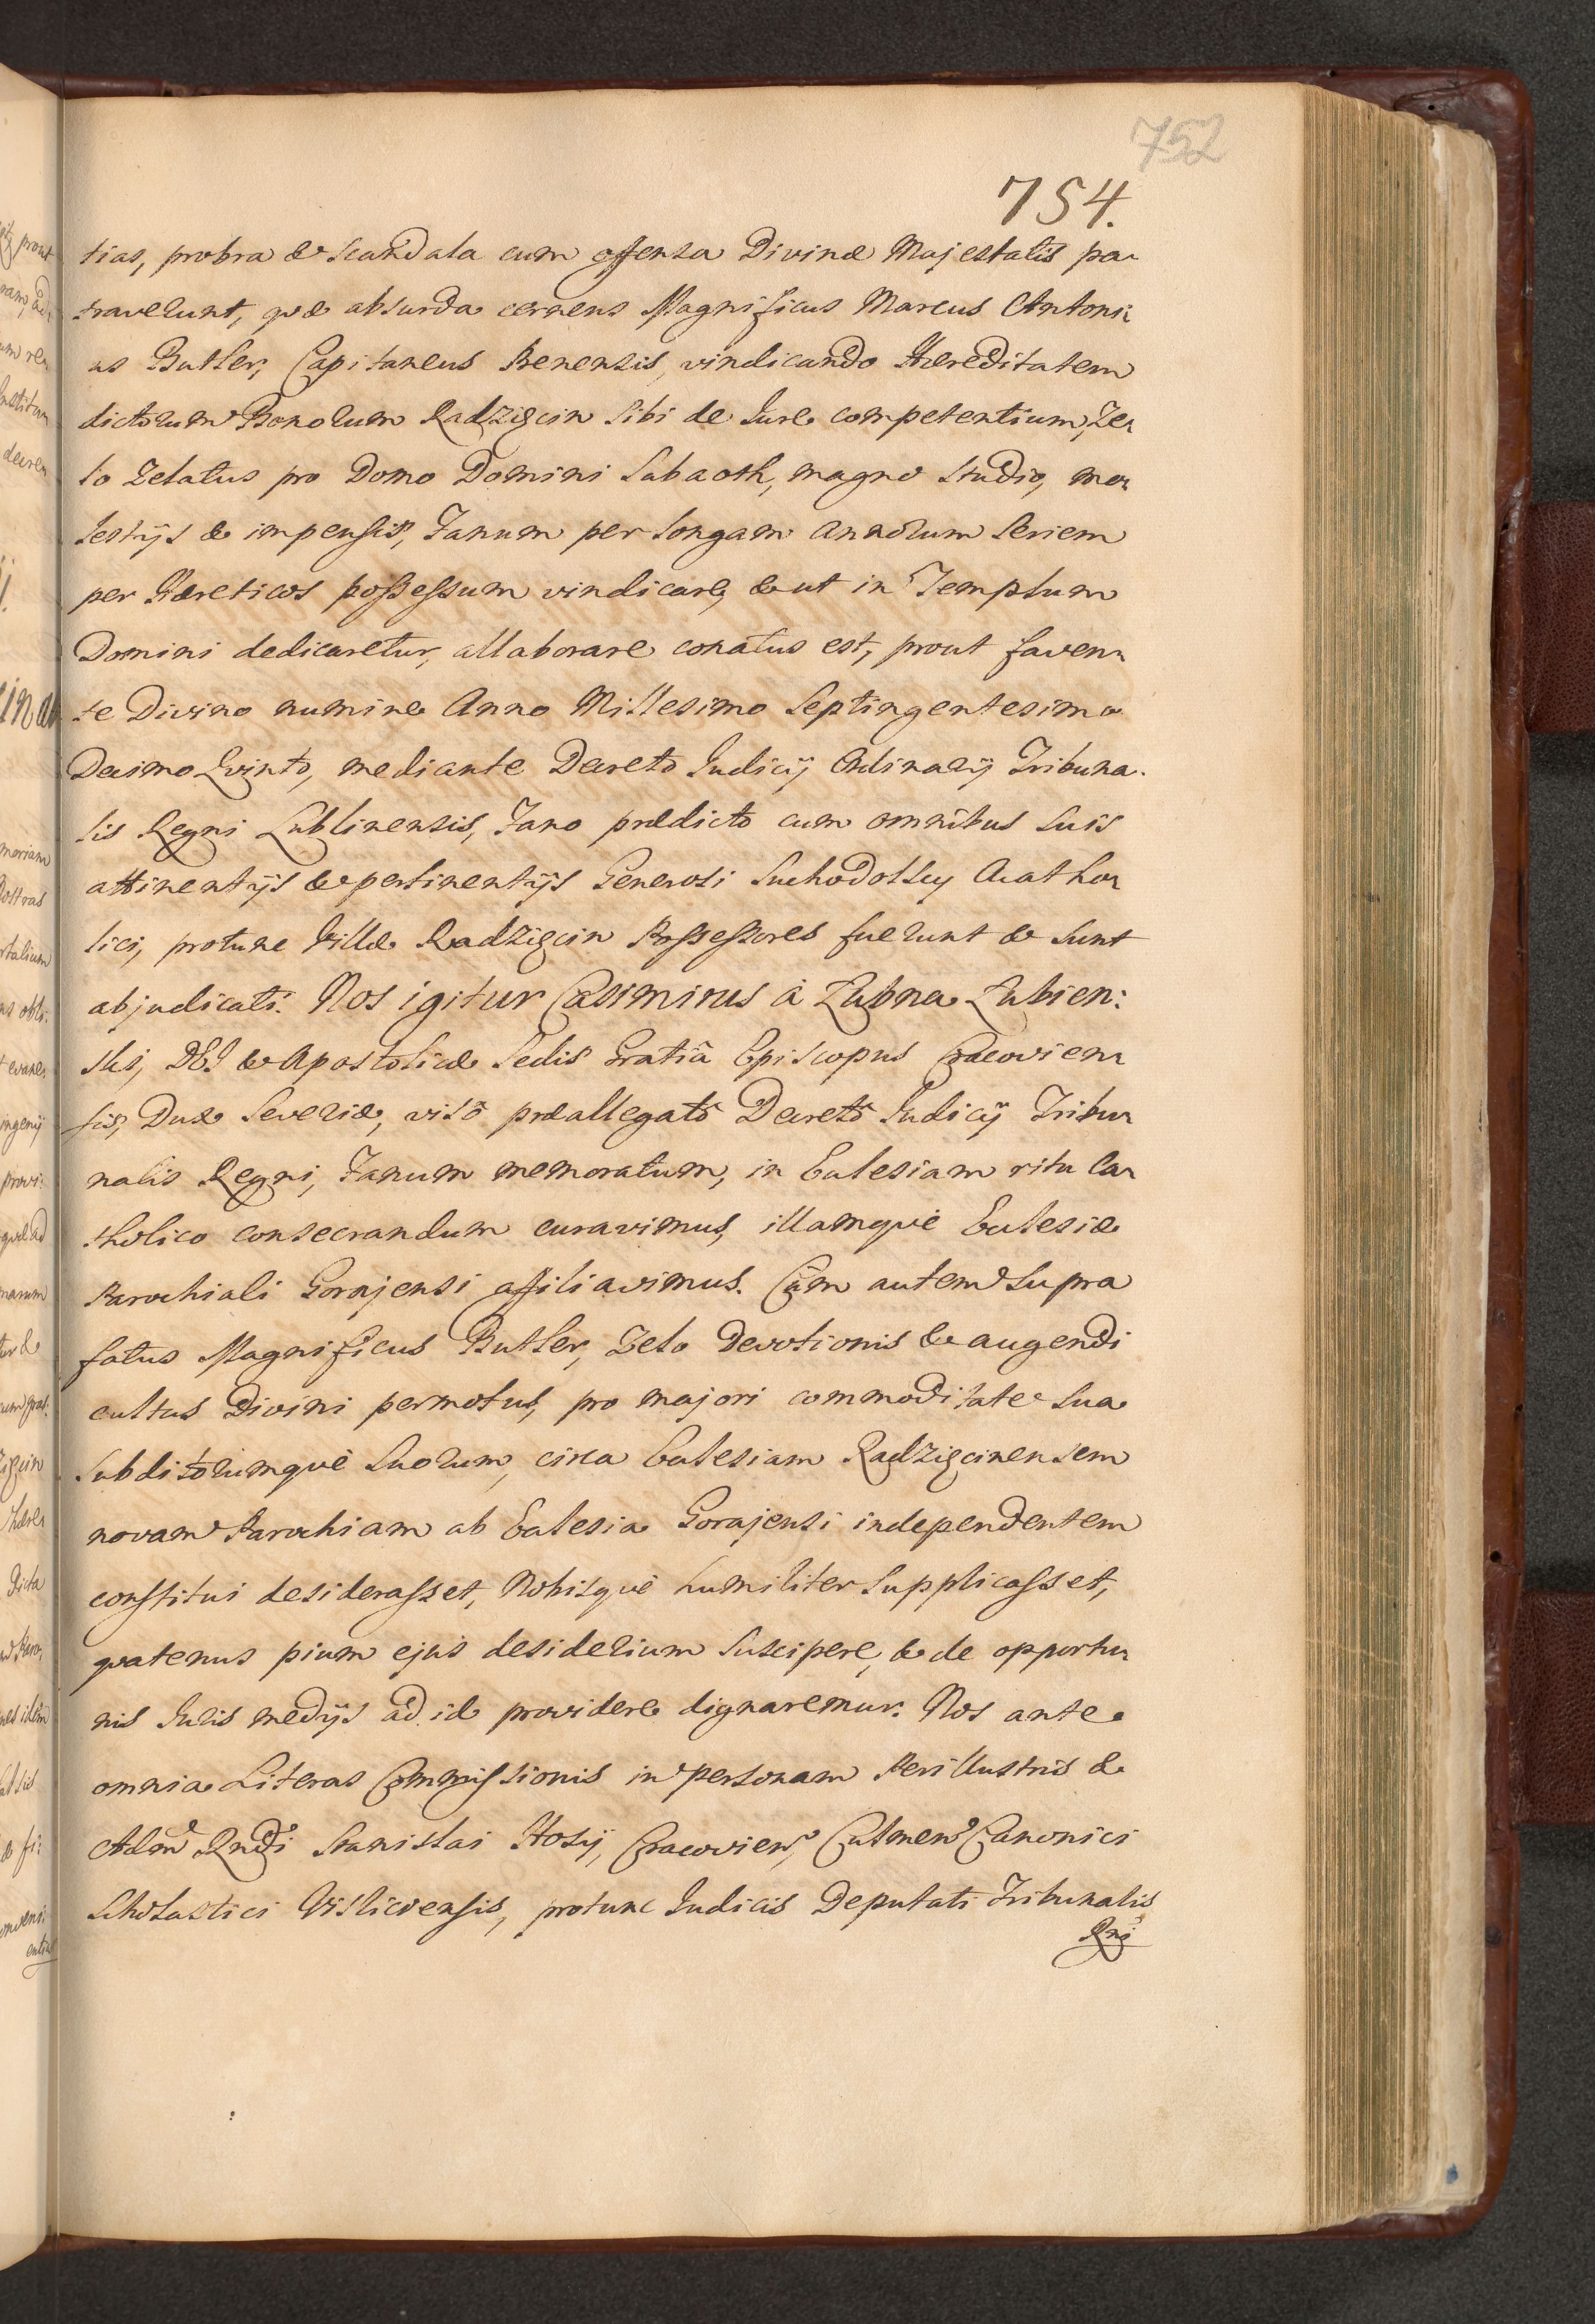 752
754.
tias, probra & Scandala cum offensa Divinæ Majestatis pa-
traverunt, quæ absurda cernens Magnificus Marcus Antoni-
us Butler, Capitaneus Prenensis, vindicando Hæreditatem
dictorum Bonorum Radzięcin Sibi de Jure competentium, Ze-
lo Zelatus pro Domo Domini Sabaoth, magno Studio, mo-
lestijs & impensis, Fanum per longam annorum Seriem
per Hæreticos possessum vindicare, & ut in Templum
Domini dedicaretur, allaborare conatus est, prout faven-
te Divino numine Anno Millesimo Septingentesimo
Decimo Qvinto, mediante Decreto Judicij Ordinarij Tribuna-
lis Regni Lublinensis, Fano prædicto cum omnibus Suis
attinentijs & pertinentijs Generosi Suchodolscy Acatho-
lici, protunc Villæ Radzięcin Possessores fuerunt & Sunt
abjudicati. Nos igitur Casimirus à Łubna Łubien:
ski, DEI & Apostolicæ Sedis Gratiâ Episcopus Cracovien-
sis, Dux Severiæ, visô præallegatô Decretô Judicij Tribu-
nalis Regni, Fanum memoratum, in Ecclesiam ritu Ca-
tholico consecrandum curavimus, illamquè Ecclesiæ
Parochiali Gorajensi affiliavimus. Cùm autem Supra
fatus Magnificus Butler, Zelo Devotionis & augendi
cultus Divini permotus, pro majori commoditate Sua
Subditorumquè Suorum, circa Ecclesiam Radzięcinensem
novam Parochiam ab Ecclesia Gorajensi independentem
constitui desiderasset, Nobisquè humiliter Supplicasset,
qvatenus pium ejus desiderium Suscipere, & de opportu-
nis Juris medijs ad id providere dignaremur. Nos ante
omnia Literas Commissionis in personam Perillustris &
Adm Rndi Stanislai Hosij, Cracovien, Culmen Canonici
Scholastici Vislicensis, protunc Judicis Deputati Tribunalis
Rni